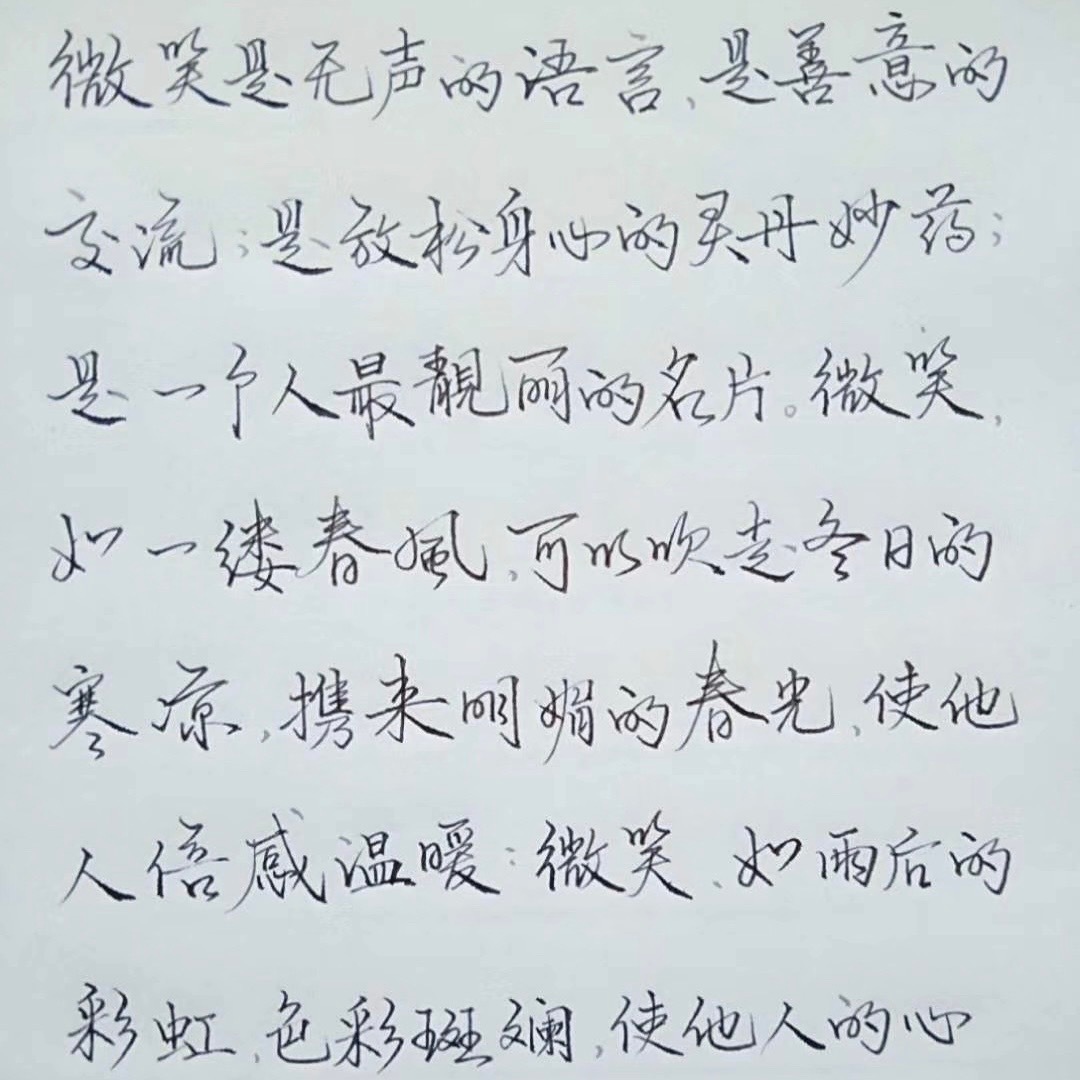 微笑是无声的语言,是善意的
交流;是放松身心的灵丹妙药;
是一个人最靓丽的名片。微笑,
如一缕春風,可以吹走冬日的
寒凉,携来明媚的春光,使他
人倍感温暖;微笑,如雨后的
彩虹,色彩斑斓,使他人的心